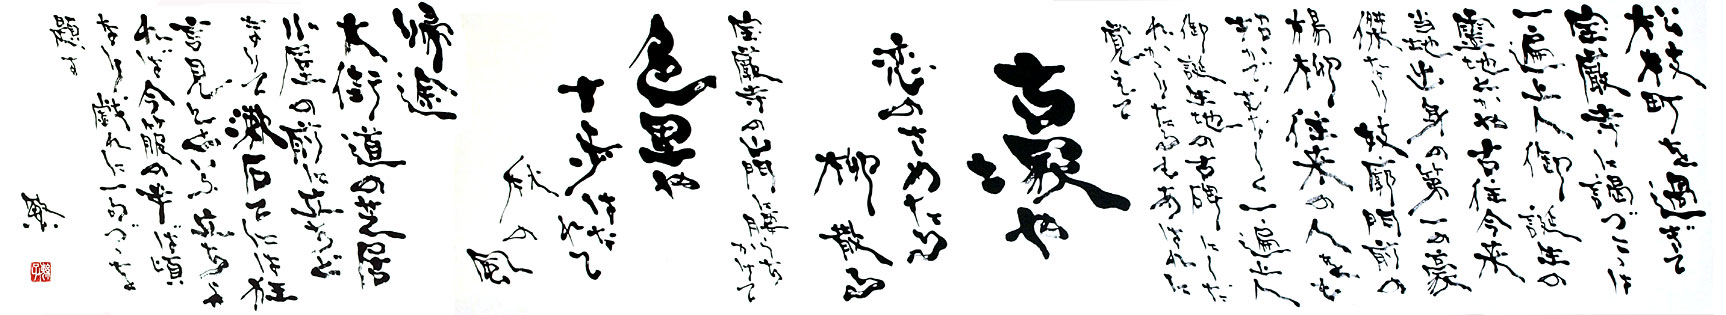 松枝町を過ぎて
宝厳寺に謁づここは
一遍上人御誕生の
霊地とかや古往今来
当地出身の第一の豪
傑なり妓廓門前の
楊柳往来の人をも
招かでむなしく一遍上人
御誕生地の古碑にしだ
れかかりたるもあはれに
覚えて
古塚や
恋のさめたる
柳散る
宝厳寺の山門に腰うちかけて
色里や
十歩はなれて
秋の風
帰途
大街道の芝居
小屋の前に立ちど
まりて漱石てには狂
言見んといふ立ちよ
れば今箙の半ば頃
なり戯れに一句づつを
題す